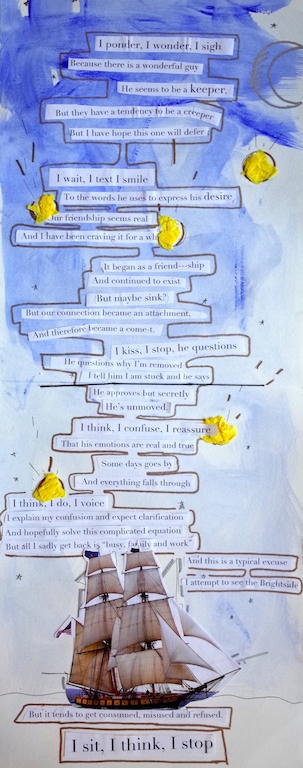 I ponder, I wonder, I sigh
Because there is a wonderful guy
He seems to be a keeper,
But they have a tendency to be a creeper
But I have hope this one will defer
I wait, I text I smile
To the words he uses to express his desire
Our friendship seems real
And I have been craving it for a
It began as a friend---ship
And continued to exist
But maybe sink?
But our connection became an attachment,
And therefore became a come-t.
I kiss, I stop, he questions
He questions why I'm removed
I tell him I am stuck and he says
He approves but secretly
He's unmoved.
I think, I confuse, I reassure
That his emotions are real and true
Some days goes by
And everything falls through
I think, I do, I voice
I explain my confusion and expect clarification
And hopefully solve this complicated equation
But all I sadly get back is "busy, family and work"
And this is a typical excuse
I attempt to see the Brightside
But it tends to get consumed, misused and refused.
I sit, I think, I stop